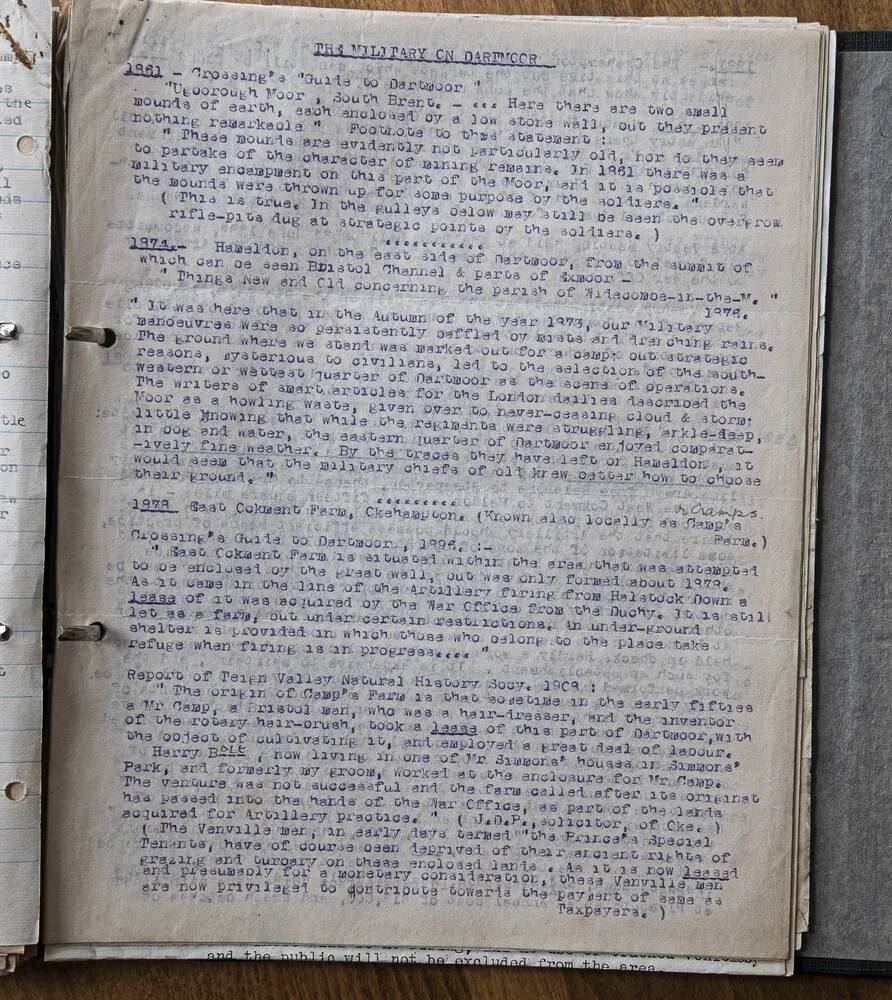 THE MILITARY ON DARTMOOR
1861 - Crossing's "Guide to Dartmoor "
"Ugborough Moor , South Brent. - ... Here there are two small
mounds of earth, each enclosed by a low stone wall, but they present
nothing remarkable "   Footnote to this statement :
" These mounds are evidently not particularly old, nor do they seem
to partake of the character of mining remains. In 1861 there was a
military encampment on this part of the Moor, and it is possible that
the mounds were thrown up for some purpose by the soldiers. "
( This is true. In the gulleys below may still be seen the overgrow
rifle-pits dug at strategic points by the soldiers. )
...........
- Hameldon, on the east side of Dartmoor, from the summit of
which can be seen Bristol Channel & parts of Exmoor -
" Things New and Old concerning the parish of Widecombe-in-the-M. "
1876.
" It was here that in the Autumn of the year 1873, our Military
manoeuvres were so persistently baffled by mists and drenching rains.
The ground where we stand was marked out for a camp; but strategic
reasons, mysterious to civilians, led to the selection of the south-
western or wettest quarter of Dartmoor as the scene of operations.
The writers of smart articles for the London dailies described the
Moor as a howling waste, given over to never-ceasing cloud & storm;
little knowing that while the regiments were struggling, ankle-deep,
in bog and water, the eastern quarter of Dartmoor enjoyed comparat-
-ively fine weather. By the traces they have left on Hameldon , it
would seem that the military chiefs of old knew better how to choose
their ground. "
...........
or Cramps.
1878 East Ockment Farm, Okehampton. (Known also locally as Camp's
Farm.)
Crossing's Guide to Dartmoor, 1896. :-
" East Ockment Farm is situated within the area that was attempted
to be enclosed by the great wall, but was only formed about 1878.
As it came in the line of the Artillery firing from Halstock Down a
lease of it was acquired by the War Office from the Duchy. It is still
let as a farm, but under certain restrictions. An under-ground
shelter is provided in which those who belong to the place take
refuge when firing is in progress.... "
Report of Teign Valley Natural History Socy. 1908 :
" The origin of Camp's Farm is that sometime in the early fifties
a Mr Camp, a Bristol man, who was a hair-dresser, and the inventor
of the rotary hair-brush, took a lease of this part of Dartmoor,with
the object of cultivating it, and employed a great deal of labour.
Harry Bolt , now living in one of Mr Simmons' houses in Simmons'
Park, and formerly my groom, worked at the enclosure for Mr Camp.
The venture was not successful and the farm called after its originat
has passed into the hands of the War Office, as part of the lands
acquired for Artillery practice. " ( J.D.P.,solicitor, of Oke. )
( The Venville men, in early days termed "the Prince's Special
Tenants, have of course been deprived of their ancient rights of
grazing and turbary on these enclosed lands . As it is now leased
and presumably for a monetary consideration, these Venville men
are now privileged to contribute towards the payment of same as
Taxpayers. )
and the public will not be excluded from the area